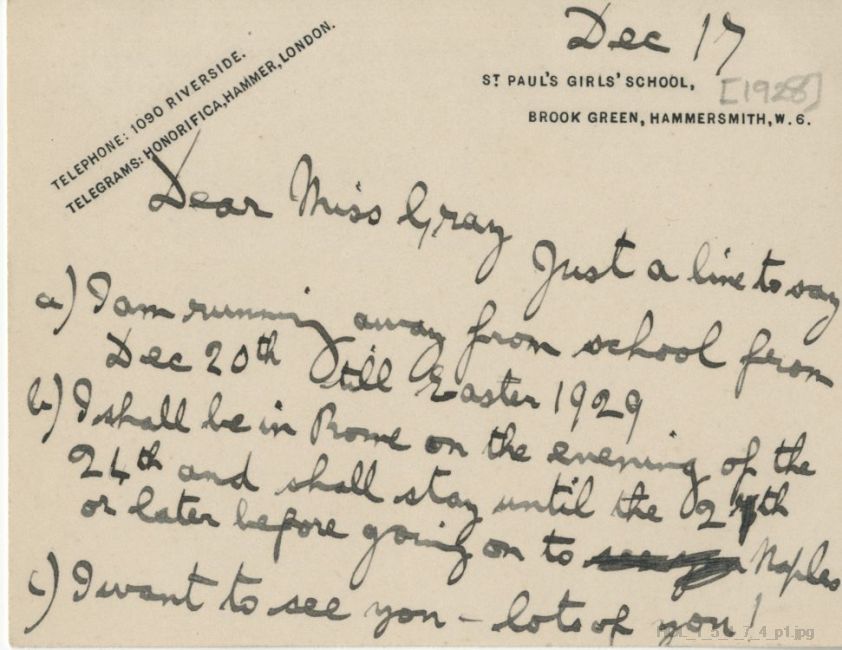 TELEPHONE: 1090 RIVERSIDE.
TELEGRAMS: HONORIFICA, HAMMER, LONDON.
Dec 17
ST PAUL'S GIRLS' SCHOOL,
[1928]
BROOK GREEN, HAMMERSMITH, W. 6.
Dear Miss Gray
Just a line to say
a) I am running away from school from
Dec 20th till Easter 1929
b) I shall be in Rome on the evening of the
24th and shall stay until the 27th
or later before going on to Naples
c) I want to see you – lots of you!